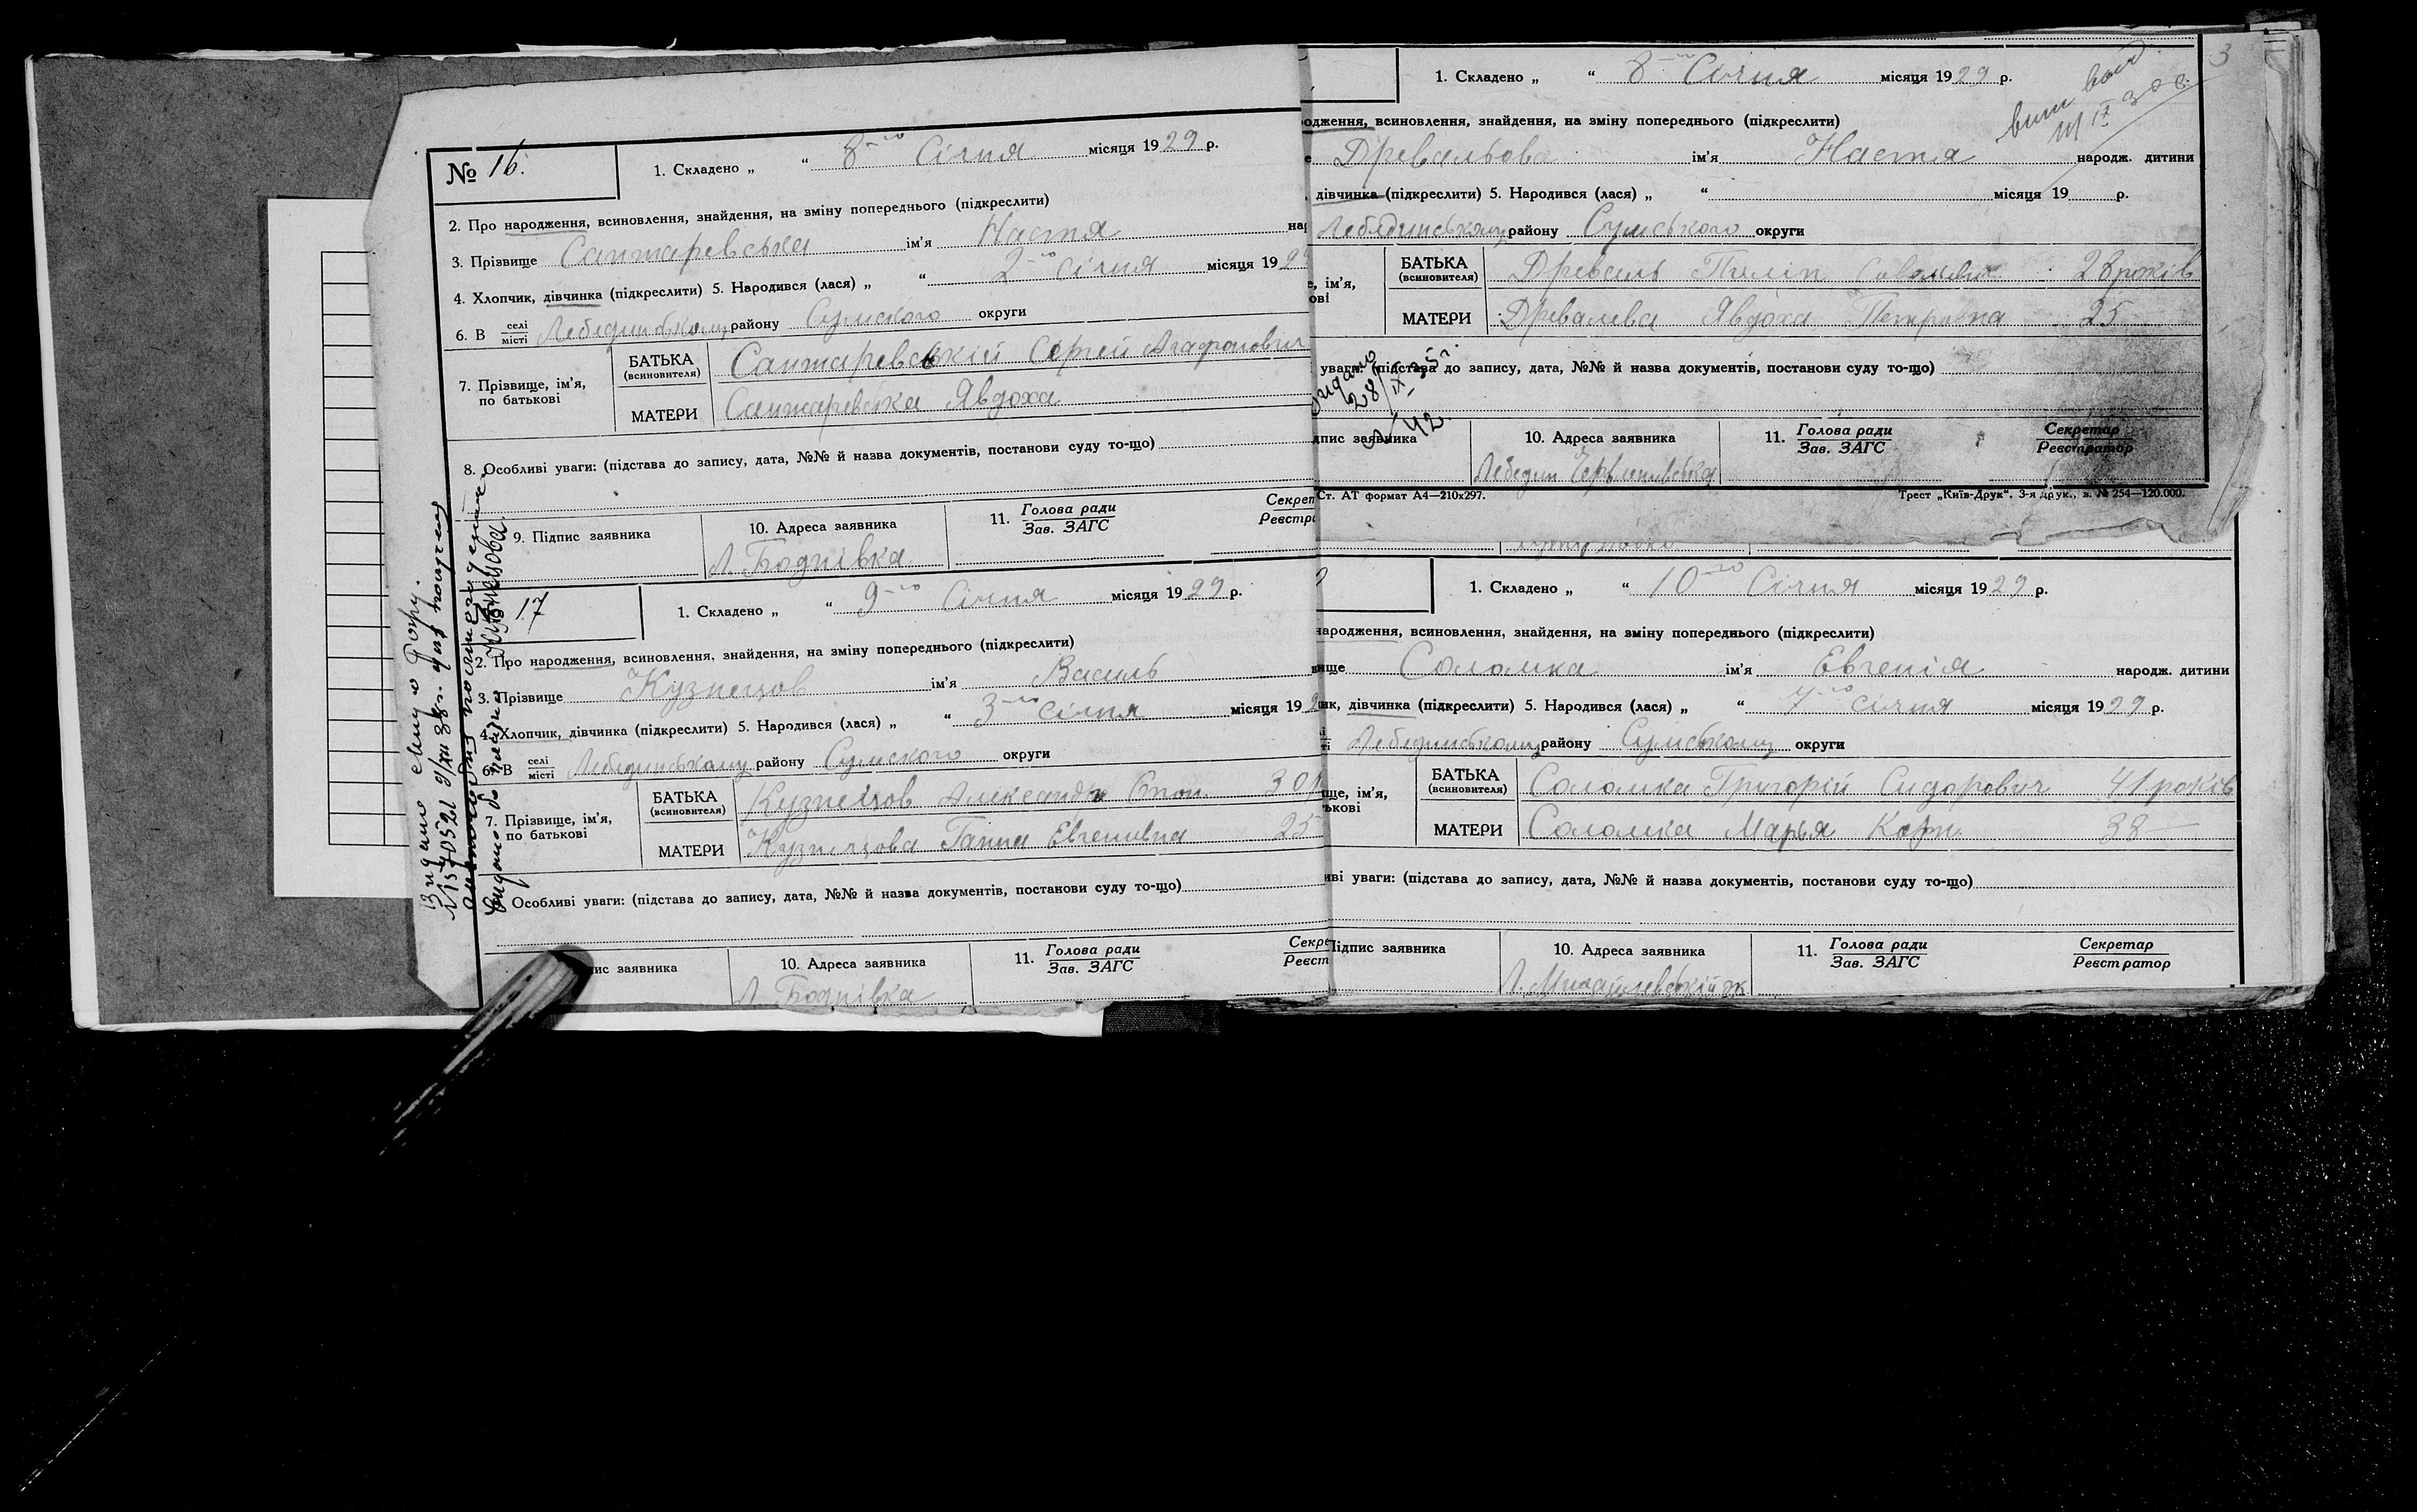 № 16.
1. Складено „ “ 8-го Січня місяця 1929 р.
2. Про народження, всиновлення, знайдення, на зміну попереднього (підкреслити)
3. Прізвище Сантаревська ім'я Настя
4. Хлопчик, дівчинка (підкреслити) 5. Народився (лася) „ “ 2-го січня місяця 192
6. В селі місті Лебединському району Сумского округи
7. Прізвище, ім'я, по батькові
БАТЬКА (всиновителя) Сантаревський Сергей Агафонович
МАТЕРИ Сантаревська Явдоха
8. Особливі уваги: (підстава до запису, дата, №№ й назва документів, постанови суду то-що)
9. Підпис заявника 10. Адреса заявника 11. Голова ради Зав. ЗАГС
Л. Боднівка
17
1. Складено „ “ 9-го Січня місяця 1929 р.
2. Про народження, всиновлення, знайдення, на зміну попереднього (підкреслити)
3. Прізвище Кузнецов ім'я Василь
4. Хлопчик, дівчинка (підкреслити) 5. Народився (лася) „ “ 3-го січня місяця 192
6. В селі місті Лебединському району Сумского округи
7. Прізвище, ім'я, по батькові
БАТЬКА (всиновителя) Кузнецов Александр 30
МАТЕРИ Кузнецова Ганна Евгенивна 25
Особливі уваги: (підстава до запису, дата, №№ й назва документів, постанови суду то-що)
заявника 10. Адреса заявника 11. Голова ради Зав. ЗАГС
Л. Боднівка
3
1. Складено „ “ 8-го Січня місяця 1929 р.
всиновлення, знайдення, на зміну попереднього (підкреслити)
Древальова ім'я Настя народж. дитини
дівчинка (підкреслити) 5. Народився (лася) „ “ місяця 19 р.
Лебединському району Сумського округи
БАТЬКА (всиновителя) Древаль Пиліп 28 років
МАТЕРИ Древалева Явдоха Петрівна 25
уваги: (підстава до запису, дата, №№ й назва документів, постанови суду то-що)
Видано 28/IX 35 г.
42.
заявника 10. Адреса заявника 11. Голова ради Зав. ЗАГС Секретар Реєстратор
Лебедин
Ст. АТ формат А4—210х297. Трест „Київ-Друк“. 3-я друк., з. № 254—120.000.
1. Складено „ “ 10-го Січня місяця 1929 р.
народження, всиновлення, знайдення, на зміну попереднього (підкреслити)
Соломка ім'я Евгенія народж. дитини
дівчинка (підкреслити) 5. Народився (лася) „ “ 7-го січня місяця 1929 р.
Лебединському району Сумському округи
БАТЬКА (всиновителя) Соломка Григорій Сидорович 41 років
МАТЕРИ Соломка Марья Карп. 38
уваги: (підстава до запису, дата, №№ й назва документів, постанови суду то-що)
Підпис заявника 10. Адреса заявника 11. Голова ради Зав. ЗАГС Секретар Реєстратор